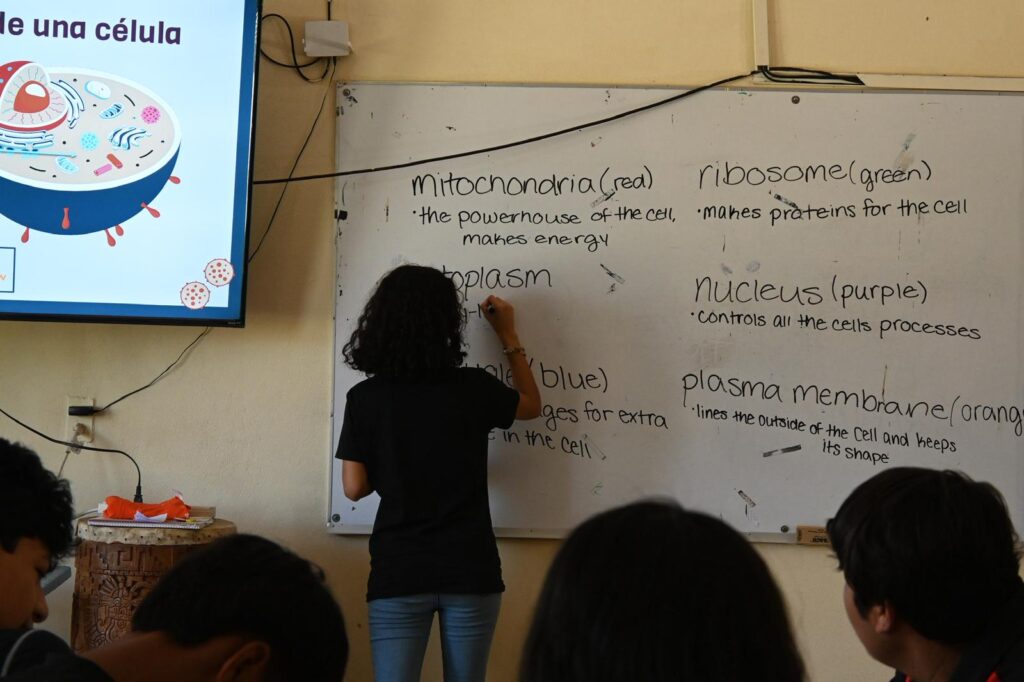 de una célula
mitochondria (red)
•the powerhouse of the cell,
makes energy
toplasm
(blue)
for extra
in the cell
ribosome (green)
•makes proteins for the cell
nucleus (purple)
•controls all the cells processes
plasma membrane (orang
•lines the outside of the cell and keeps
its shape